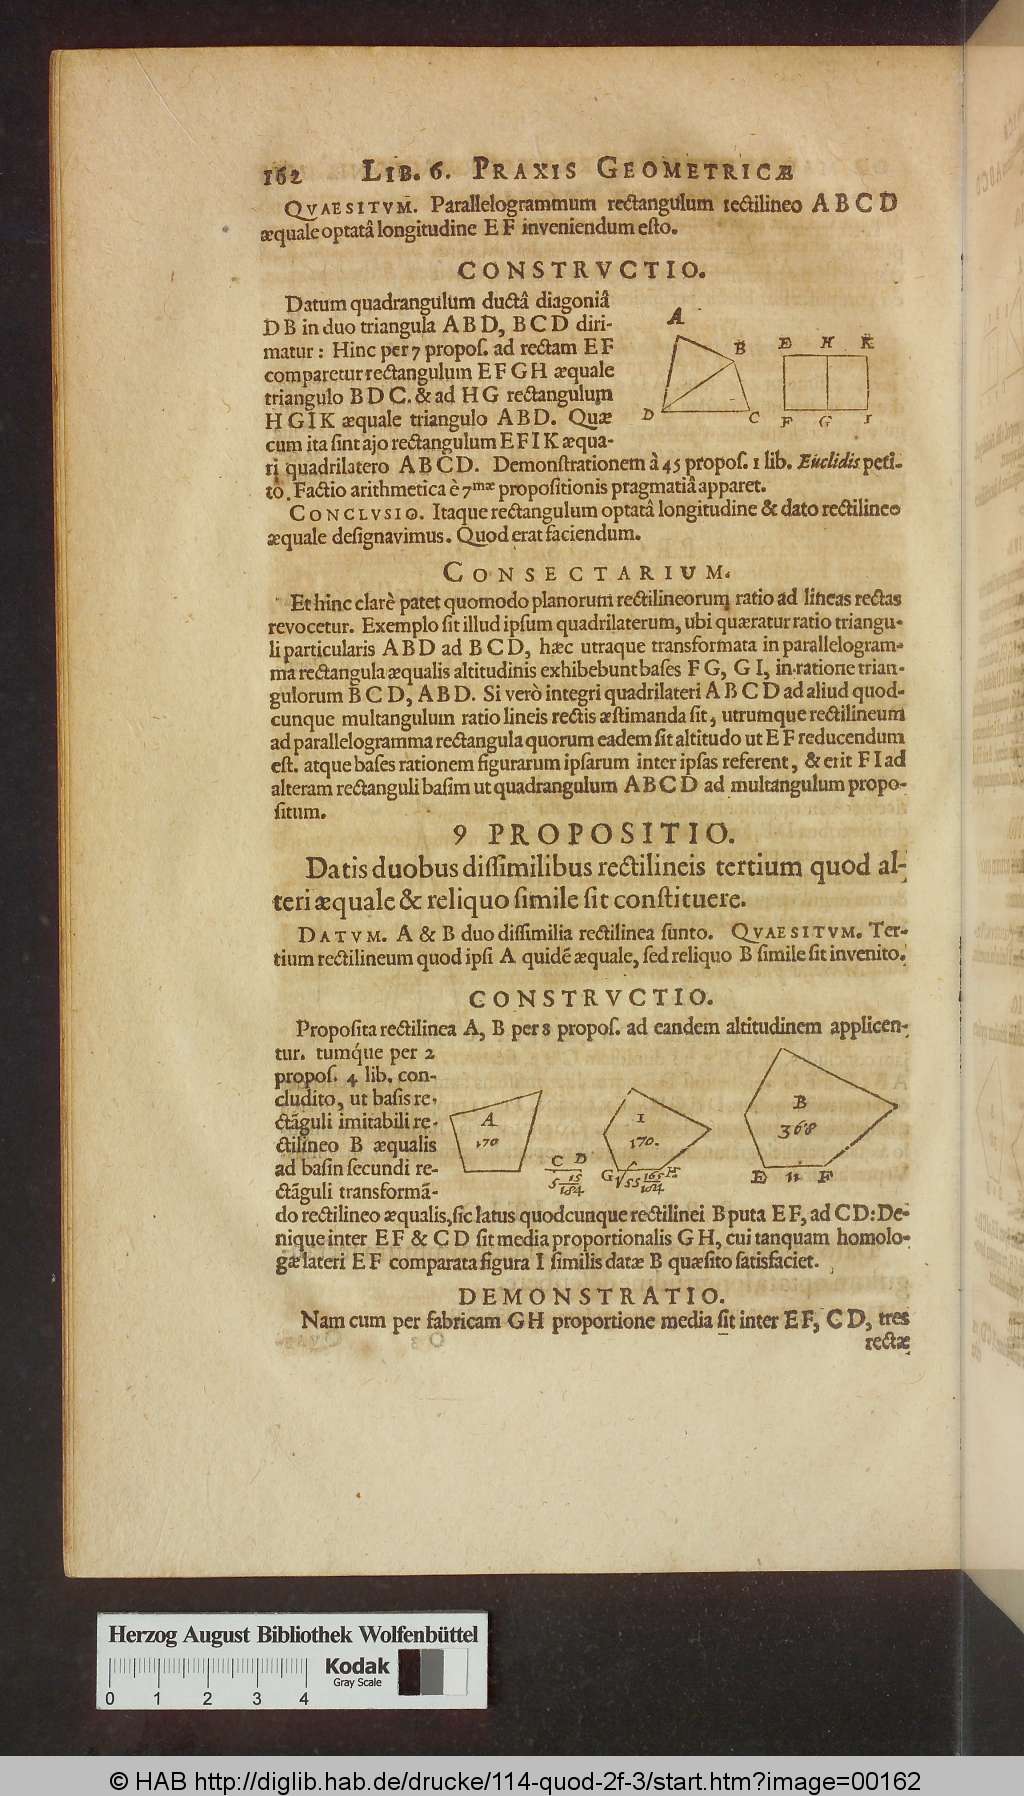 162 LIB. 6. PRAXIS GEOMETRICÆ
QVAESITVM. Parallelogrammum rectangulum rectilineo ABCD
æquale optatâ longitudine EF inveniendum esto.
CONSTRVCTIO.
Datum quadrangulum ductâ diagoniâ
DB in duo triangula ABD, BCD diri-
matur: Hinc per 7 propos. ad rectam EF
comparetur rectangulum EFGH æquale
triangulo BDC. & ad HG rectangulum
HGIK æquale triangulo ABD. Quæ
cum ita sint ajo rectangulum EFIK æqua-
ri quadrilatero ABCD. Demonstrationem à 45 propos. 1 lib. Euclidis peti-
to. Factio arithmetica è 7mæ propositionis pragmatiâ apparet.
A
B
D
C
E H K
F G I
CONCLVSIO. Itaque rectangulum optatâ longitudine & dato rectilineo
æquale designavimus. Quod erat faciendum.
CONSECTARIUM.
Et hinc clarè patet quomodo planorum rectilineorum ratio ad lineas rectas
revocetur. Exemplo sit illud ipsum quadrilaterum, ubi quæratur ratio triangu-
li particularis ABD ad BCD, hæc utraque transformata in parallelogram-
ma rectangula æqualis altitudinis exhibebunt bases FG, GI, in ratione trian-
gulorum BCD, ABD. Si verò integri quadrilateri ABCD ad aliud quod-
cunque multangulum ratio lineis rectis æstimanda sit, utrumque rectilineum
ad parallelogramma rectangula quorum eadem sit altitudo ut EF reducendum
est. atque bases rationem figurarum ipsarum inter ipsas referent, & erit FI ad
alteram rectanguli basim ut quadrangulum ABCD ad multangulum propo-
situm.
9 PROPOSITIO.
Datis duobus dissimilibus rectilineis tertium quod al-
teri æquale & reliquo simile sit constituere.
DATVM. A & B duo dissimilia rectilinea sunto. QVAESITVM. Ter-
tium rectilineum quod ipsi A quidē æquale, sed reliquo B simile sit invenito.
CONSTRVCTIO.
Proposita rectilinea A, B per 8 propos. ad eandem altitudinem applicen-
tur. tumq́ue per 2
propos. 4 lib. con-
cludito, ut basis re-
ctāguli imitabili re-
ctilineo B æqualis
ad basin secundi re-
ctāguli transformā-
A
170
C D
5 15/184
I
170.
G √55 165/184 H
B
368
E 11 F
do rectilineo æqualis, sic latus quodcunque rectilinei B puta EF, ad CD: De-
nique inter EF & CD sit media proportionalis GH, cui tanquam homolo-
gæ lateri EF comparata figura I similis datæ B quæsito satisfaciet.
DEMONSTRATIO.
Nam cum per fabricam GH proportione media sit inter EF, CD, tres
rectæ
Herzog August Bibliothek Wolfenbüttel
Kodak
Gray Scale
0 1 2 3 4
© HAB http://diglib.hab.de/drucke/114-quod-2f-3/start.htm?image=00162